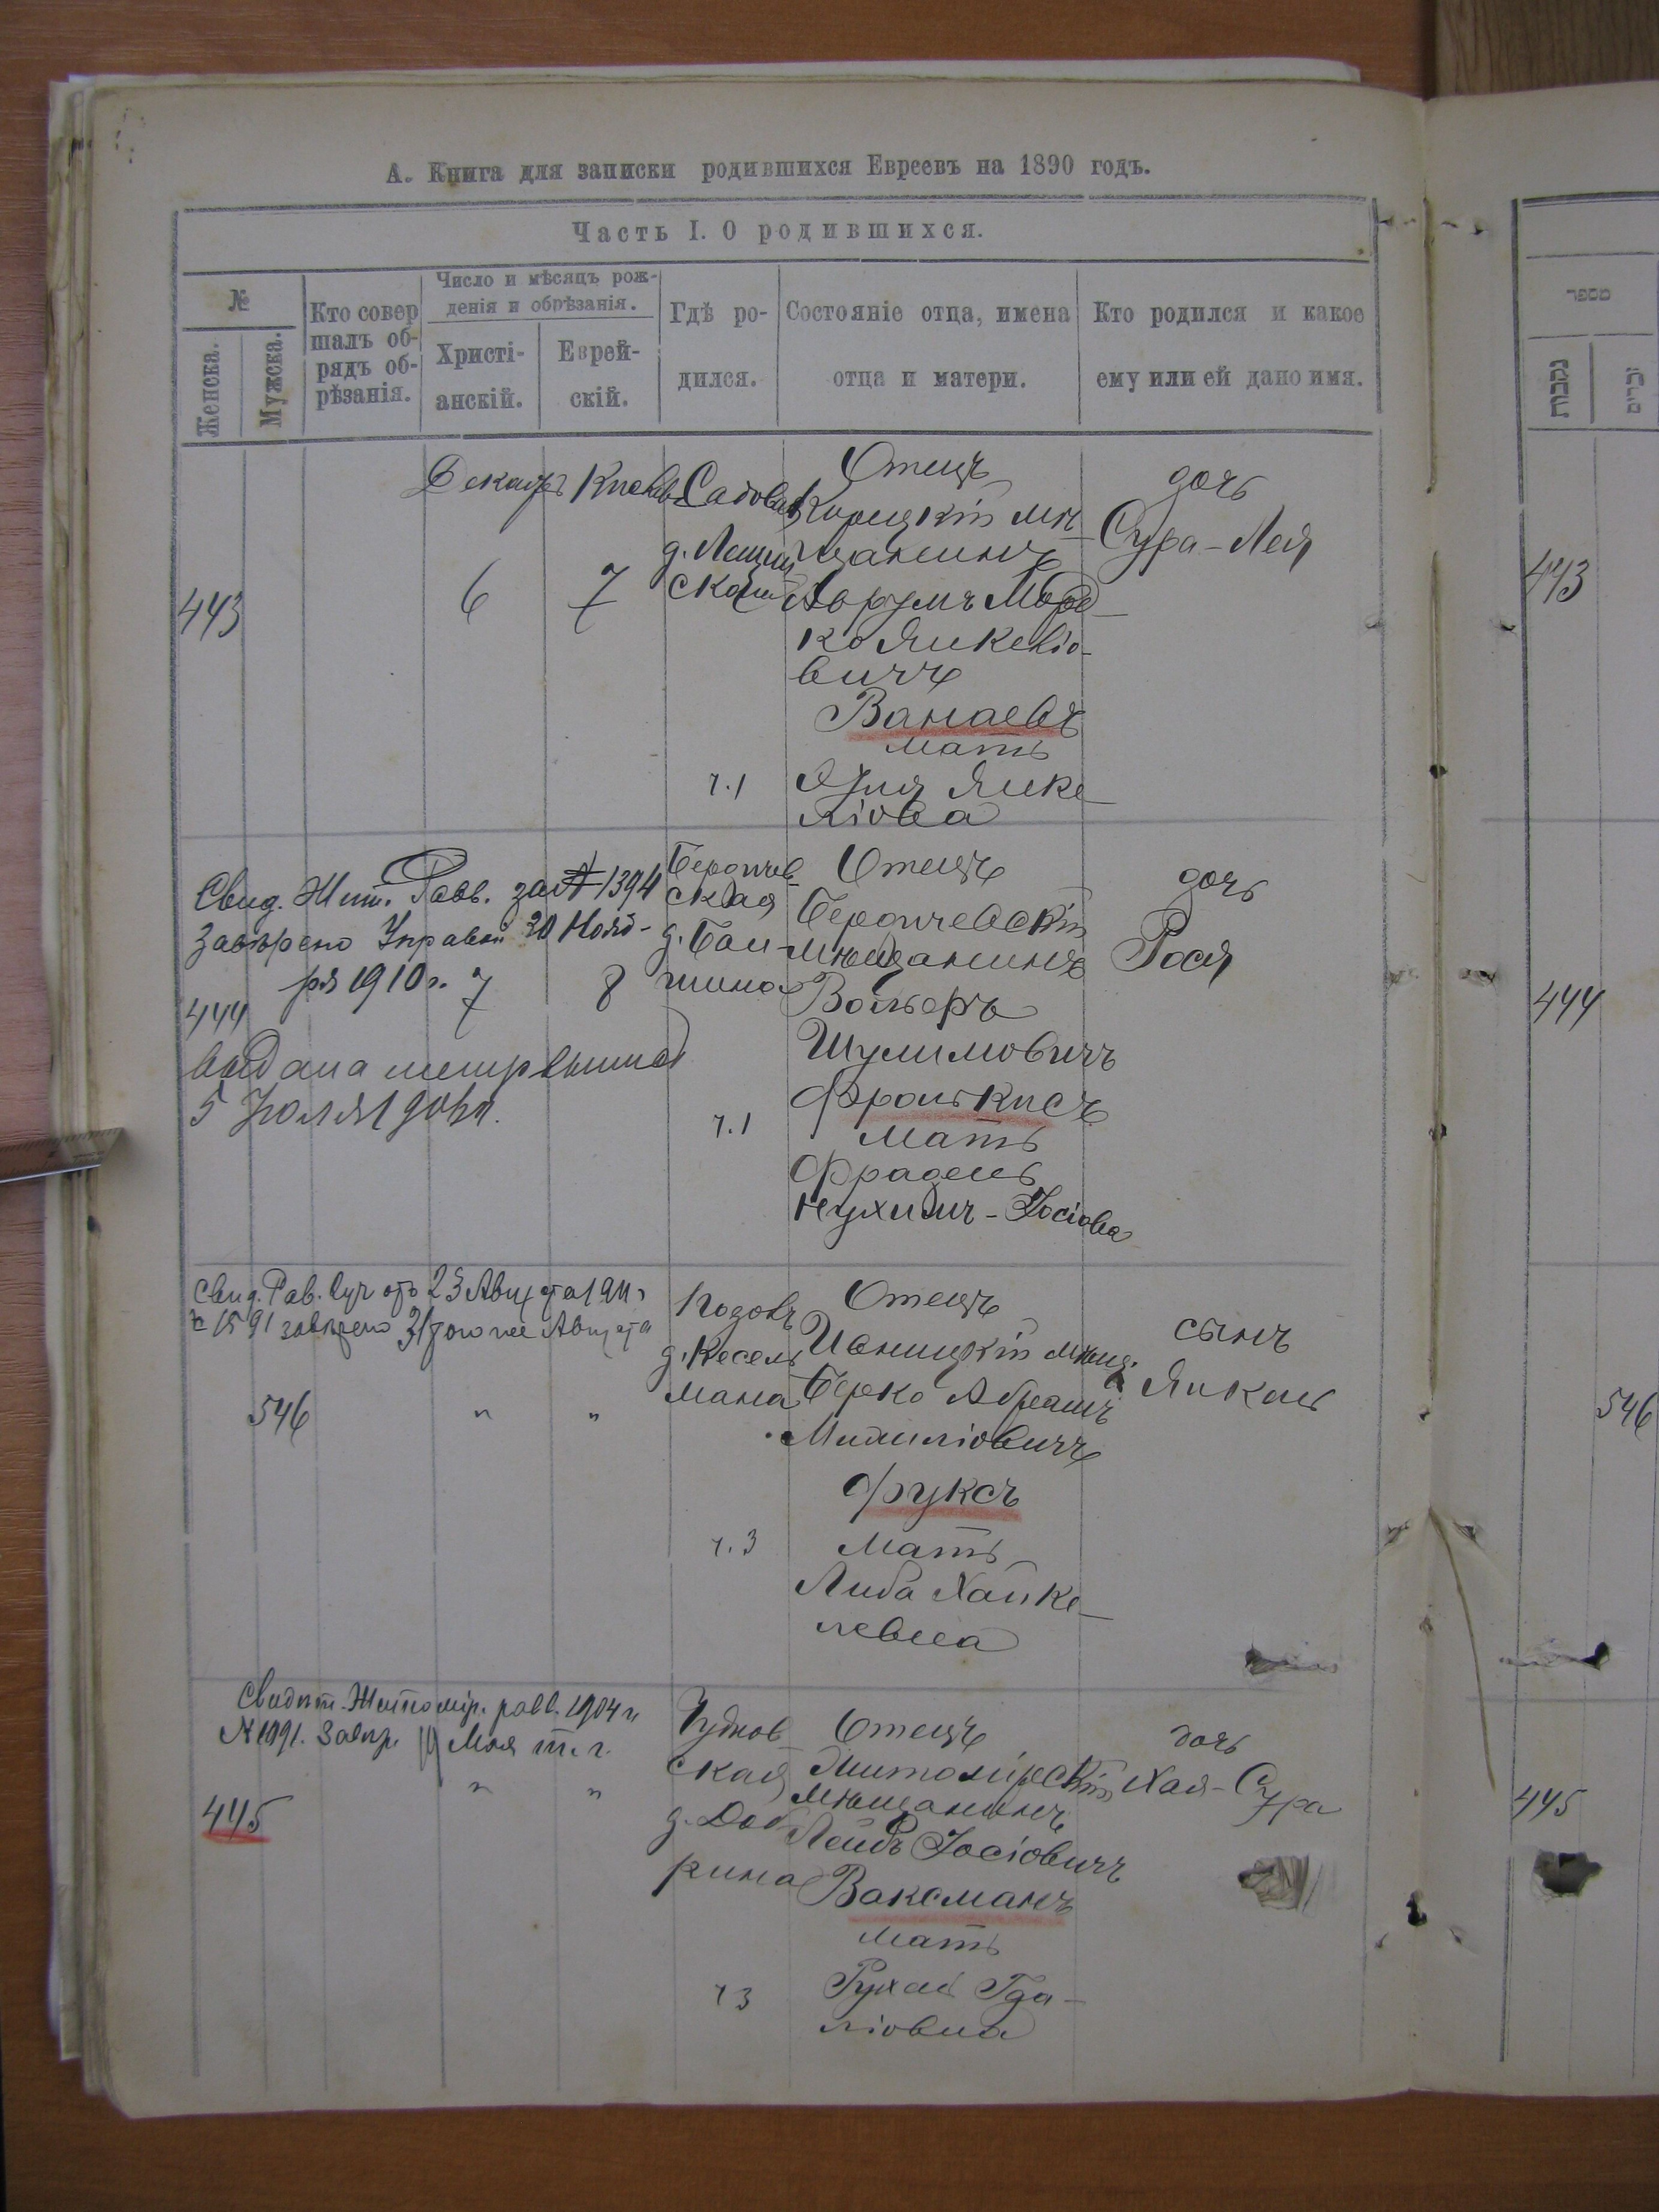 А. Книга для записки родившихся Евреевъ на 1890 годъ.
Часть I. О родившихся.
№
Женска.
Мужска.
Кто совер
шалъ об-
рядъ об-
рѣзанія.
Число и мѣсяцъ рож-
денія и обрѣзанія.
Христі-
анскій.
Еврей-
скій.
Гдѣ ро-
дился.
Состояніе отца, имена
отца и матери.
Кто родился и какое
ему или ей дано имя.
מספר
נקבות
זכרים
443
Декабръ
6
Кислевъ
7
Садовая
ской
ч.1
Отецъ
Корецкій мѣ-
щанинъ
Аврумъ Морд-
ко Янкеліо-
вичъ
Ванаевъ
мать
Янке-
ліова
дочь
Сура-Лея
443
Свид. Жит. Равв. за № 1394
Завѣрено Управой 30 Нояб-
ря 1910 г.
444
7
8
5 Іюля
Бердичев-
ская
ч.1
Отецъ
Бердичевскій
мѣщанинъ
Вольфъ
Шулимовичъ
Френкисъ
мать
Фрадель
Нухимъ-Іосіова
дочь
Рося
444
Свид. Рав. отъ 23 Августа 1911 г
№ 1591 завѣрено 31 того же Августа
546
"
"
д. Кесель
мана
ч.3
Отецъ
Ивницкій мѣщ.
Берко Абрамъ
Михиліовичъ
Фуксъ
мать
Либа Хайке-
левна
сынъ
Янкель
546
Свидѣт. Житомір. равв. 1904 г.
№ 1091. Завѣр. 19 Мая т. г.
445
"
"
Чуднов-
ская
д. Доб
кина
ч 3
Отецъ
Житомірскій
мѣщанинъ
Лейбъ Іосіовичъ
Ваксманъ
мать
Рухль Гда-
ліовна
дочь
Хая-Сура
445